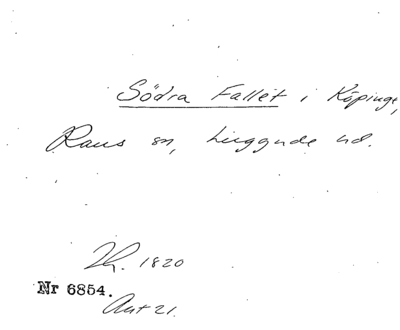 Södra Fallet i Köpinge,
Raus sn, Luggude hd.
Th. 1820
Nr 6854.
Akt 21.